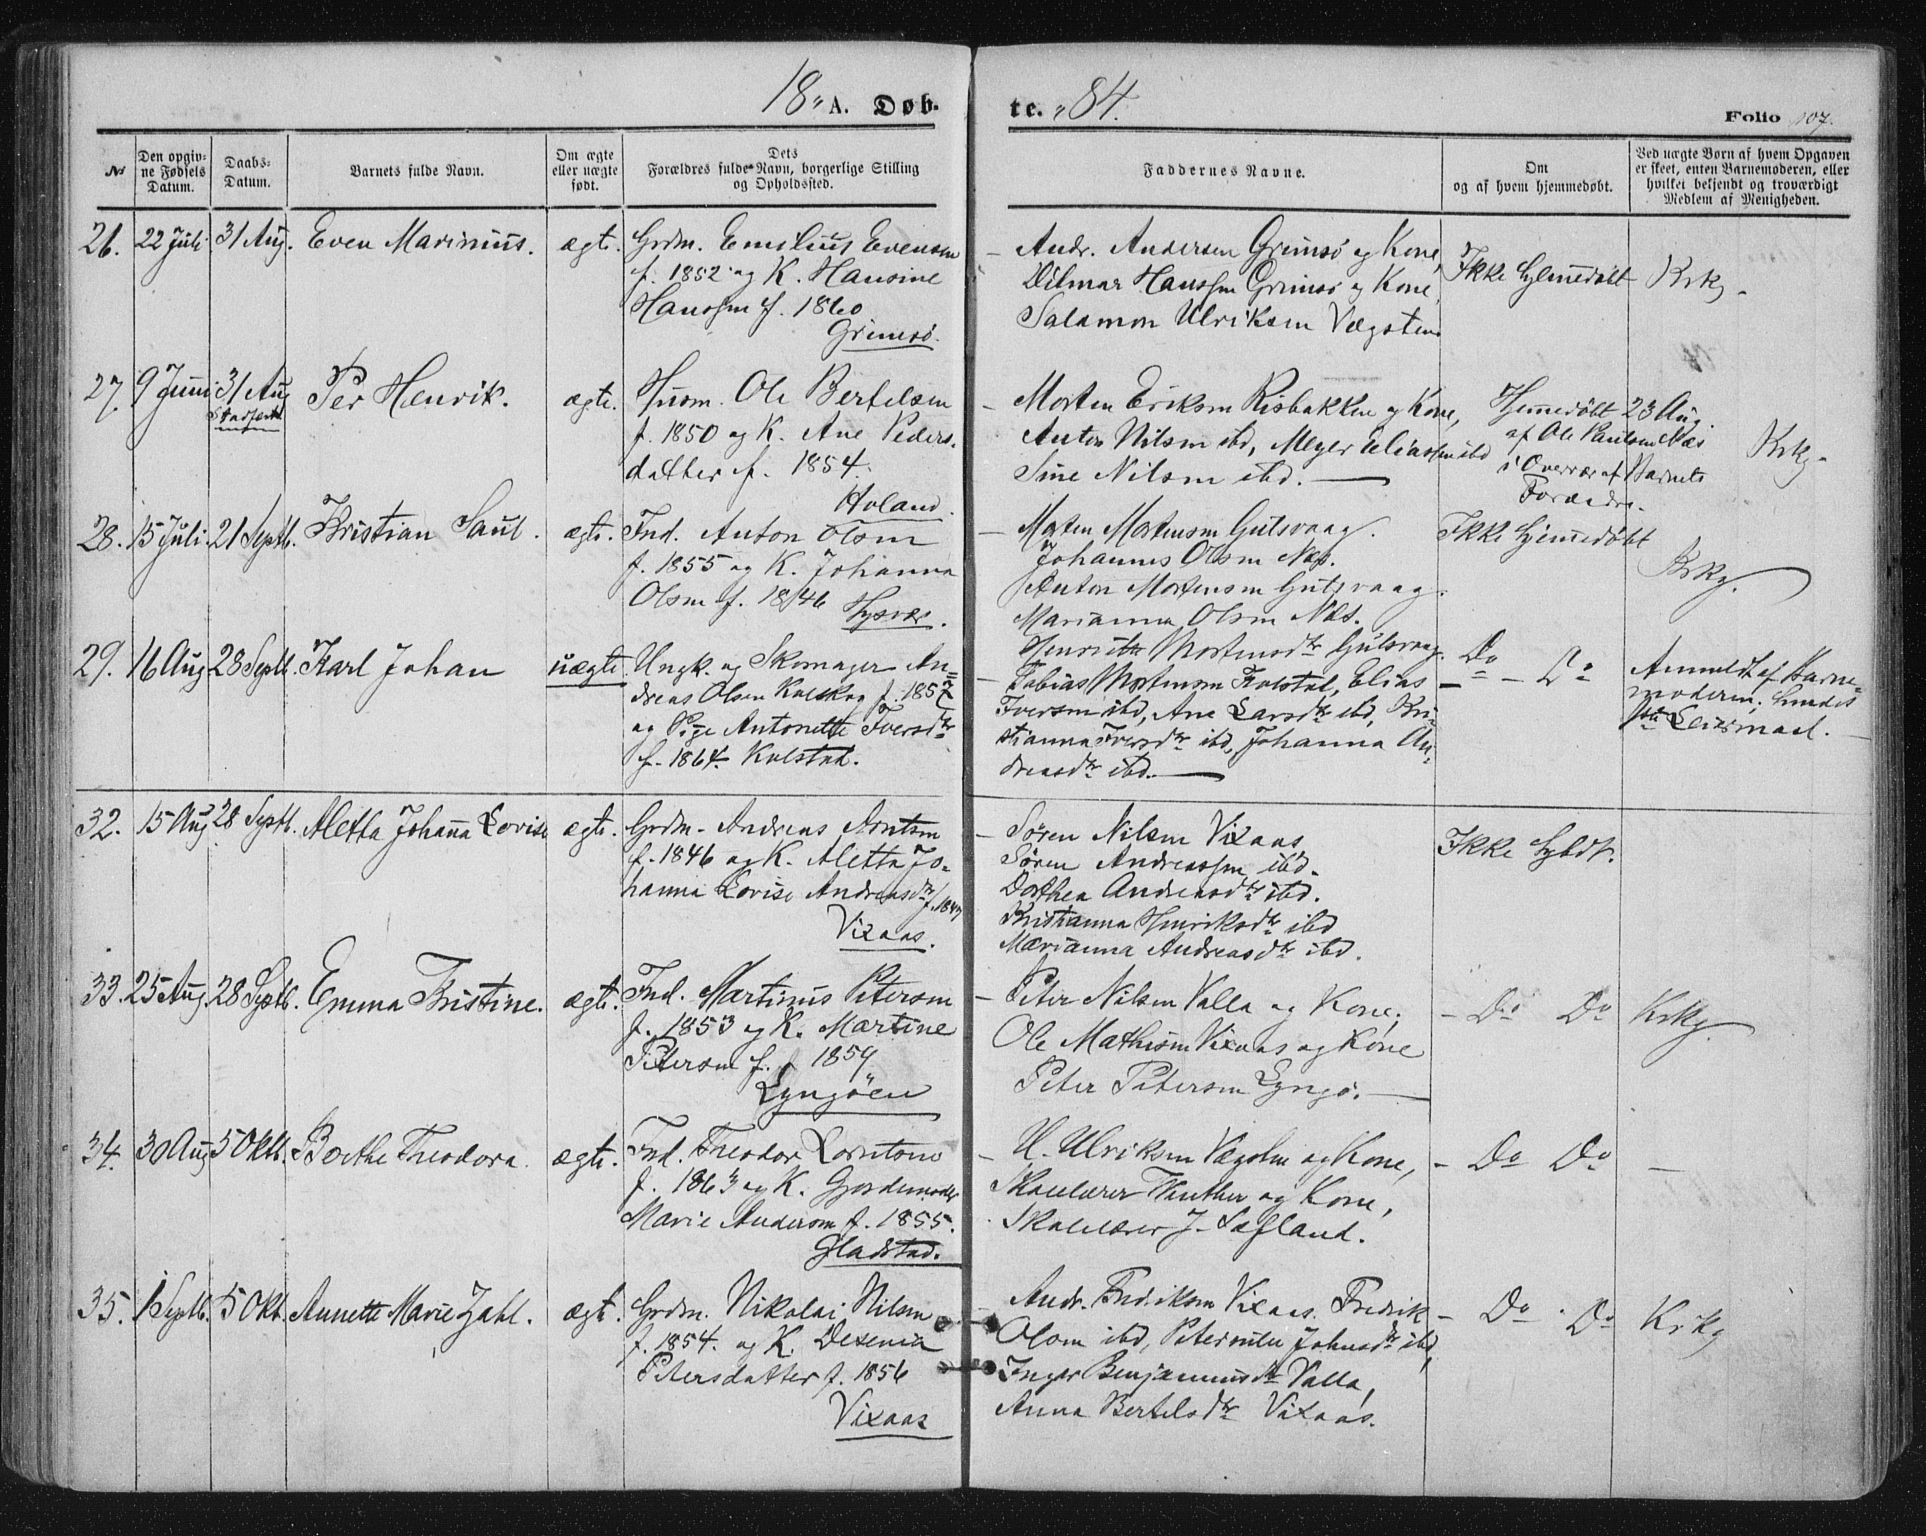 18 A. Døb-
te. 84.
Folio 107.
№
Den opgiv-
ne Fødsels
Datum.
Daabs-
Datum.
Barnets fulde Navn.
Om ægte
eller uægte
født.
Dets
Forældres fulde Navn, borgerlige Stilling
og Opholdssted.
Faddernes Navne.
Om
og af hvem hjemmedøbt.
Ved uægte Børn af hvem Opgaven
er skeet, enten Barnemoderen, eller
hvilket bekjendt og troværdigt
Medlem af Menigheden.
26. 22 Juli 31 Aug. Even Marinius. ægte. Grdm. Emilius Evensen
f. 1852 og K. Hansine
Hanssen f. 1860
Grimsø.
Andr. Andersen Grimsø og Kone,
Dilmar Hanssen Grimsø og Kone,
Salamon Ulriksen Vægsten
Ikke hjemmedøbt Krkg.
27. 9 Juni 31 Aug Per Henrik. ægte. Husm. Ole Bertelsen
f. 1850 og K. Ane Peders-
datter f. 1854.
Holand.
Morten Eriksen Risbakken og Kone,
Anton Nilsen ibd, Meyer Eliassen ibd
Sine Nilsen ibd.
Hjemmedøbt 23 Aug.
af Ole Paulsen Næs
i Overvær af Barnets
Forældre.
Krkg.
28. 15 Juli. 21 Septb. Kristian Saul. ægte. Ind. Anton Olsen
f. 1855 og K. Johanna
Olsen f. 1846 Hysvær.
Morten Mortensen Gutsvaag.
Johannes Olsen Næs.
Anton Mortensen Gutsvaag.
Marianna Olsen Næs.
Henriette Mortensdtr Gutsvaag.
Ikke hjemmedøbt
Krkg.
29. 16 Aug 28 Septb. Karl Johan uægte. Ungk. og Skomager An-
dreas Olsen f. 1857
og Pige Antonette Iversdtr
f. 1864. Kolstad.
Tobias Mortensen Kolstad, Elias
Iversen ibd, Ane Larsdtr ibd, Kri-
stianna Iversdtr ibd, Johanna An-
dreasdtr ibd.
Do Do
Anmeldt af Barne-
moderen,
32. 15 Aug 28 Septb. Aletta Johanna Lovise ægte. Grdm. Andreas Arntsen
f. 1846 og K. Aletta Jo-
hanna Lovise Andreasdtr f. 1847
Vixaas.
Søren Nilsen Vixaas
Søren Andreassen ibd.
Dorthea Andreasdtr ibd.
Kristianna Henriksdtr ibd
Marianna Andreasdtr ibd.
Ikke hjbdt.
33. 25 Aug. 28 Septb. Emma Kristine. ægte. Ind. Martinus Petersen
f. 1853 og K. Martine
Petersen f. 1859
Lyngöen
Peter Nilsen Valla og Kone,
Ole Mathisen Vixaas og Kone
Peter Petersen Lyngø.
Do Do Krkg.
34. 30 Aug 5 Oktb. Berthe Theodora. ægte. Ind. Theodor Lorntsen
f. 1863 og K. Gjordemoder
Marie Andersen f. 1855.
Gladstad.
U. Ulriksen Vægsten og Kone,
Skolelærer Winther og Kone,
Skolelærer J. Sæfland.
Do Do
35. 1 Septb. 5 Oktb. Annette Marie Zahl. ægte. Grdm. Nikolai Nilsen
f. 1854. og K. Desenia
Petersdatter f. 1856
Vixaas
Andr. Fredriksen Vixaas. Fredrik
Olsen ibd, Peternille Johnsdtr ibd,
Inger Benjaminsdtr Valla,
Anna Bertelsdtr Vixaas.
Do Do Krkg